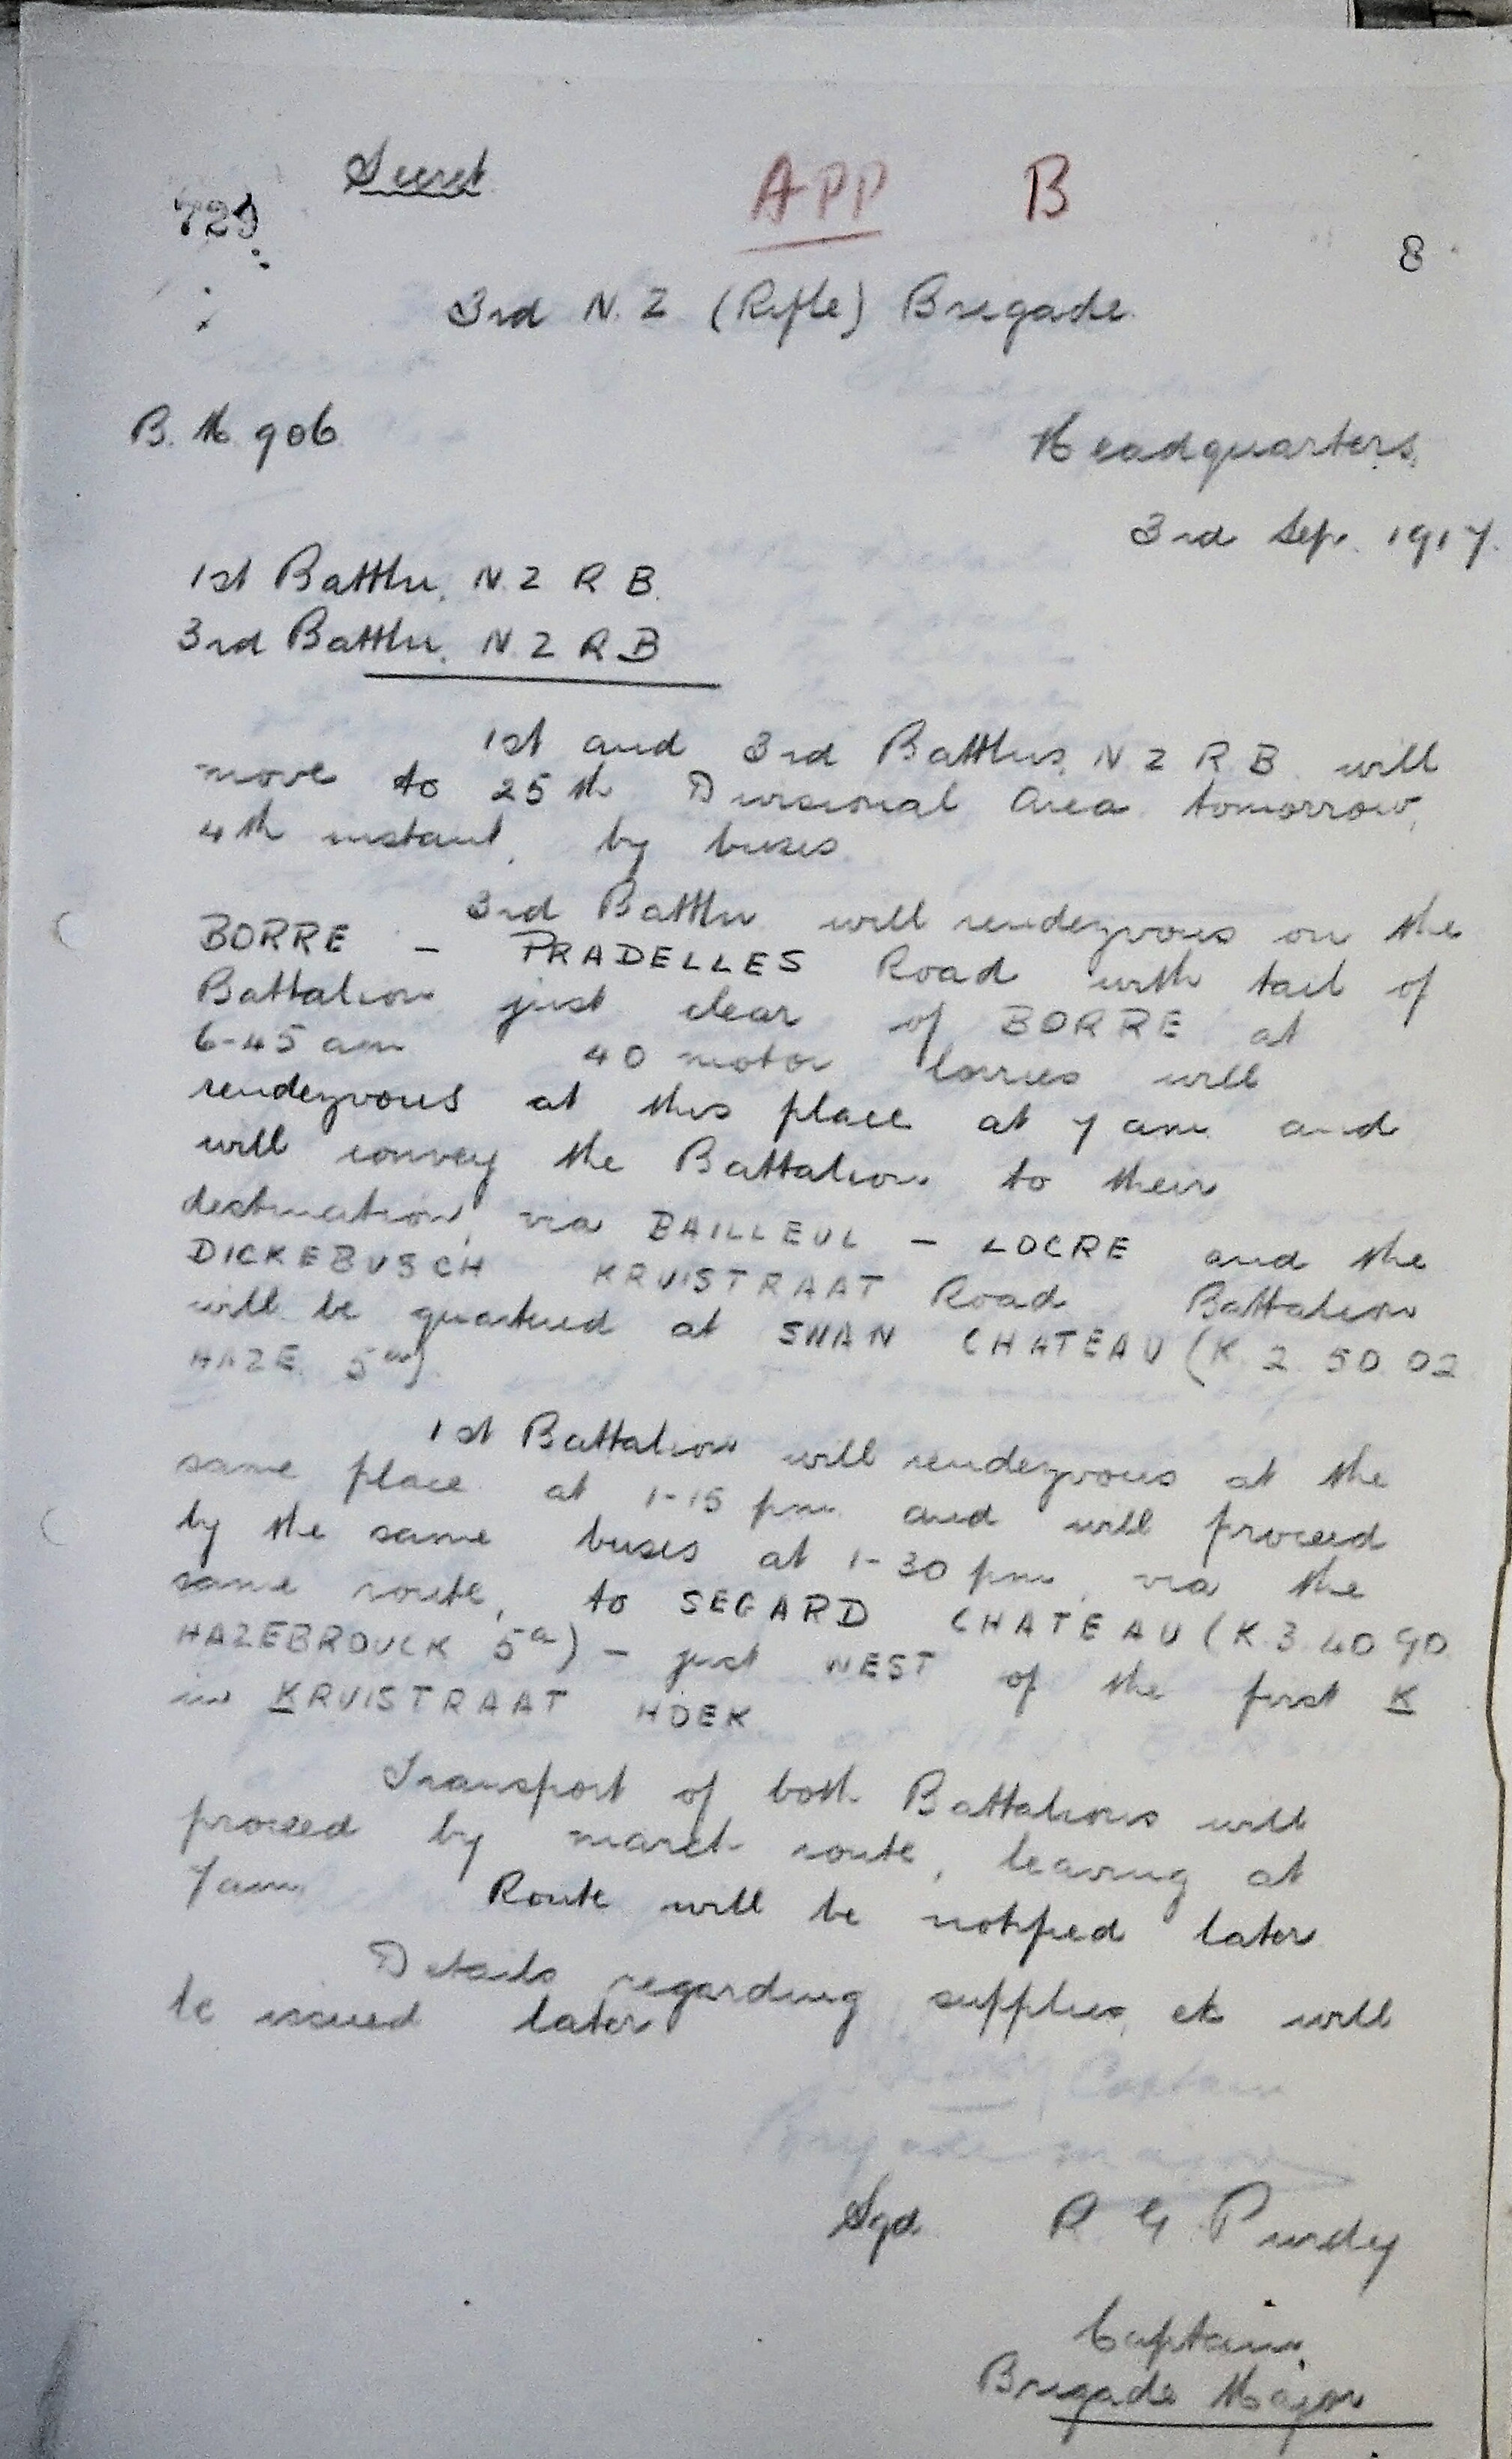 Secret
APP B
729
8
3rd N. Z (Rifle) Brigade
B. M. 906
Headquarters,
3rd Sep. 1917.
1st Battln. N. Z R B.
3rd Battln. N. Z R B
1st and 3rd Battlns. N Z R B. will
move to 25th Divisional Area tomorrow,
4th instant, by buses
3rd Battln will rendezvous on the
BORRE – PRADELLES Road with tail of
Battalion just clear of BORRE at
6-45 am 40 motor lorries will
rendezvous at this place at 7 am and
will convey the Battalion to their
destination, via BAILLEUL – LOCRE and the
DICKEBUSCH KRUISTRAAT Road Battalion
will be quartered at SWAN CHATEAU (K. 2. 50 02
HAZE. 5a).
1st Battalion will rendezvous at the
same place at 1-15 pm and will proceed
by the same buses at 1-30 pm, via the
same route, to SEGARD CHATEAU (K. 3. 40 90
HAZEBROUCK 5a) – just WEST of the first K
in KRUISTRAAT HOEK
Transport of both Battalions will
proceed by march route, leaving at
7 am. Route will be notified later
Details regarding supplies, etc will
be issued later
Sgd R. G. Purdy
Captain.
Brigade Major